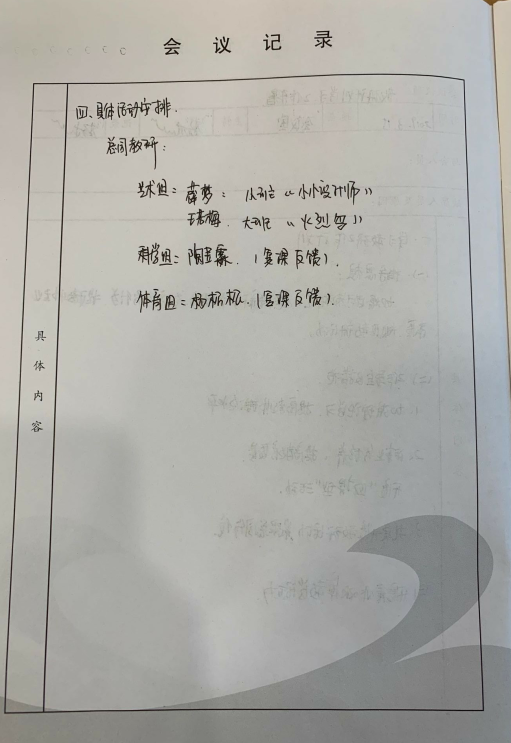 会议记录
四、具体活动安排.
总园教研：
艺术组：薛梦：小班 "小小设计师"
大班 "火烈鸟"
科学组：陶玉霖.（复课反馈）.
体育组：杨杨杨.（复课反馈）.
具体内容